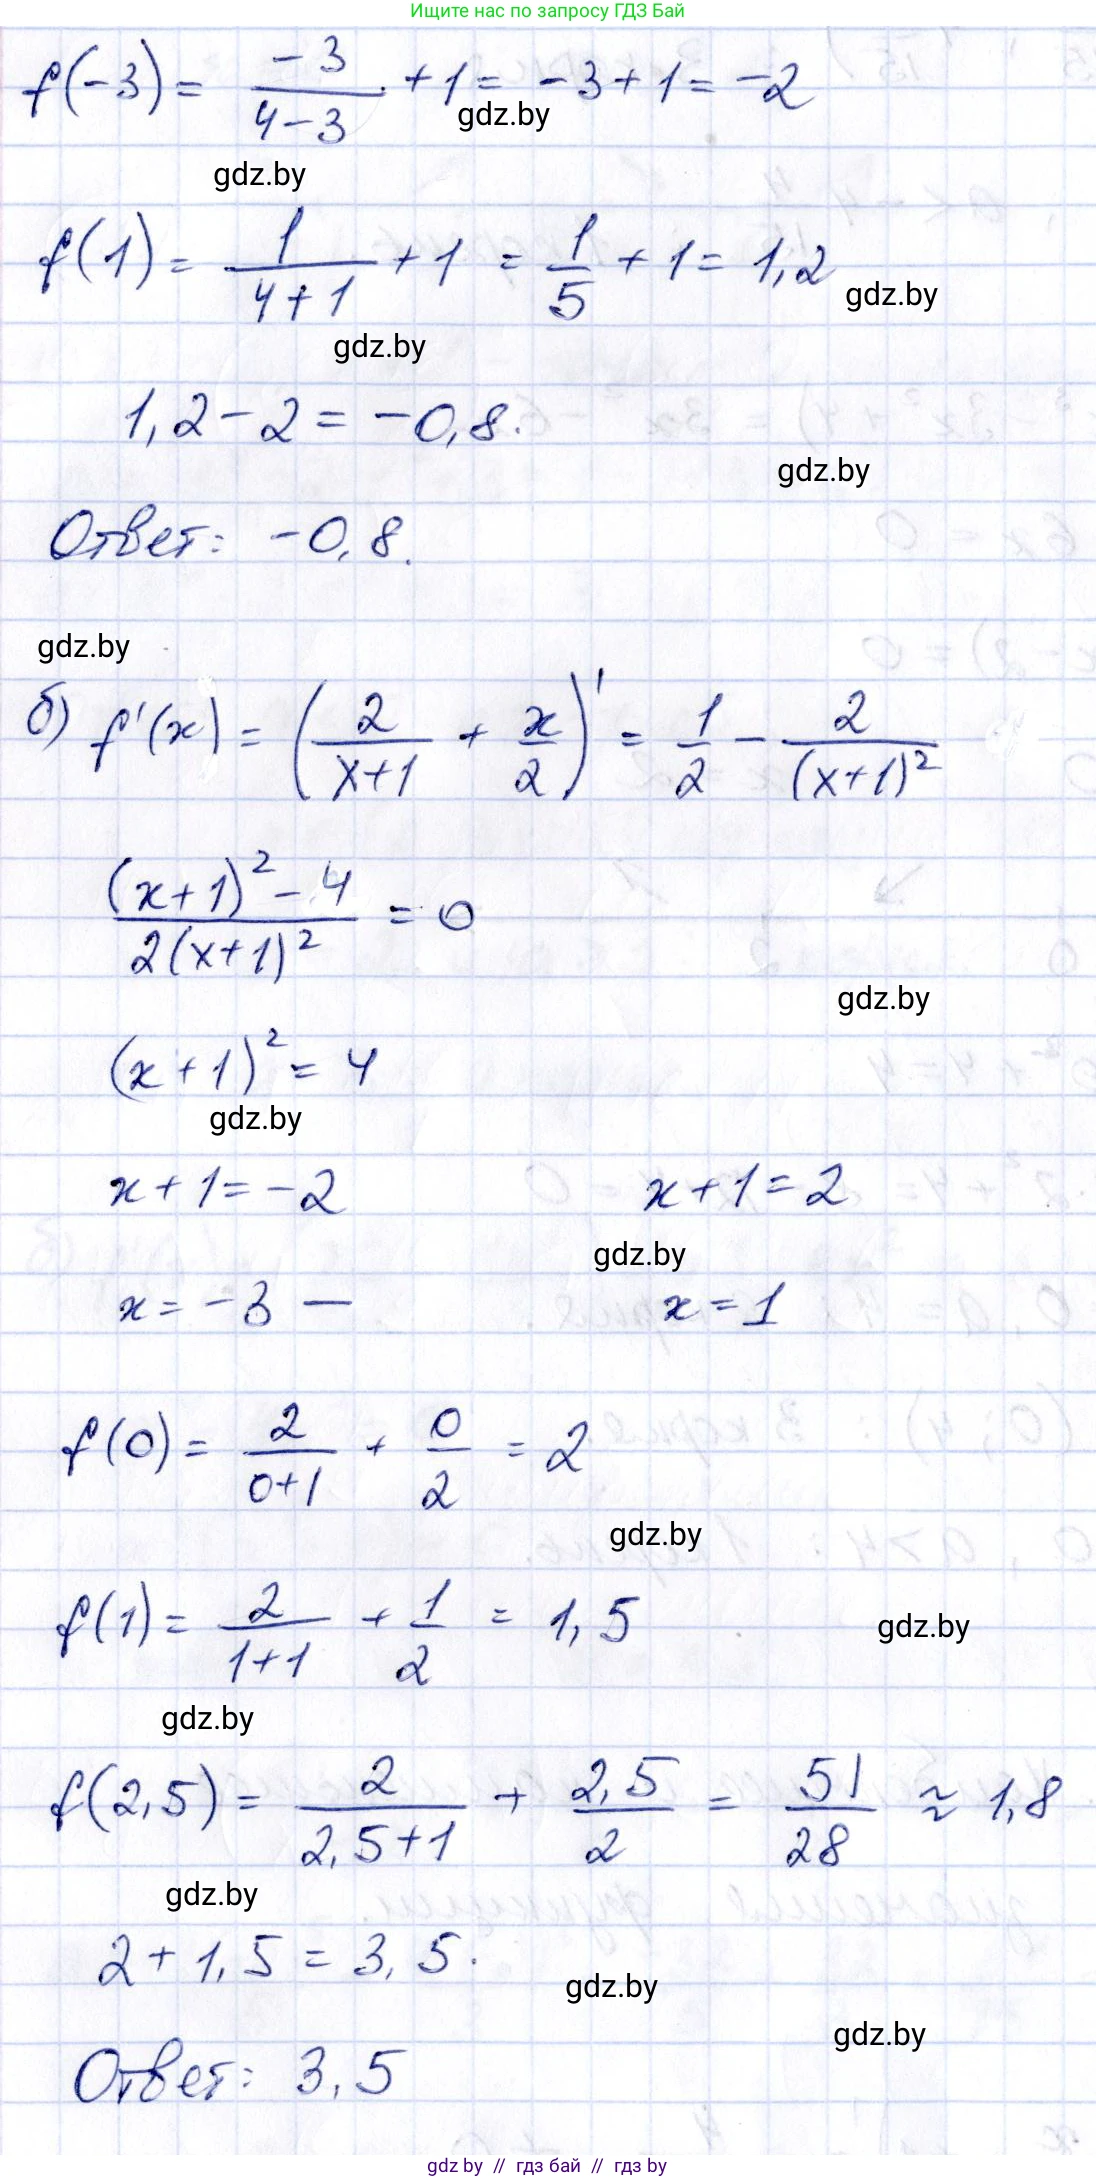 Ищите нас по запросу ГДЗ Бай
f(-3) = -3/(4-3) + 1 = -3 + 1 = -2
gdz.by
gdz.by
f(1) = 1/(4+1) + 1 = 1/5 + 1 = 1,2
gdz.by
gdz.by
1,2 - 2 = -0,8.
gdz.by
Ответ: -0,8.
gdz.by
б) f'(x) = (2/(x+1) + x/2)' = 1/2 - 2/(x+1)²
((x+1)² - 4)/(2(x+1)²) = 0
gdz.by
(x+1)² = 4
gdz.by
x+1 = -2 x+1 = 2
gdz.by
x = -3 — x = 1
f(0) = 2/(0+1) + 0/2 = 2
gdz.by
f(1) = 2/(1+1) + 1/2 = 1,5
gdz.by
gdz.by
f(2,5) = 2/(2,5+1) + 2,5/2 = 51/28 ≈ 1,8
gdz.by
2 + 1,5 = 3,5.
gdz.by
gdz.by
Ответ: 3,5
gdz.by // гдз бай // гдз by